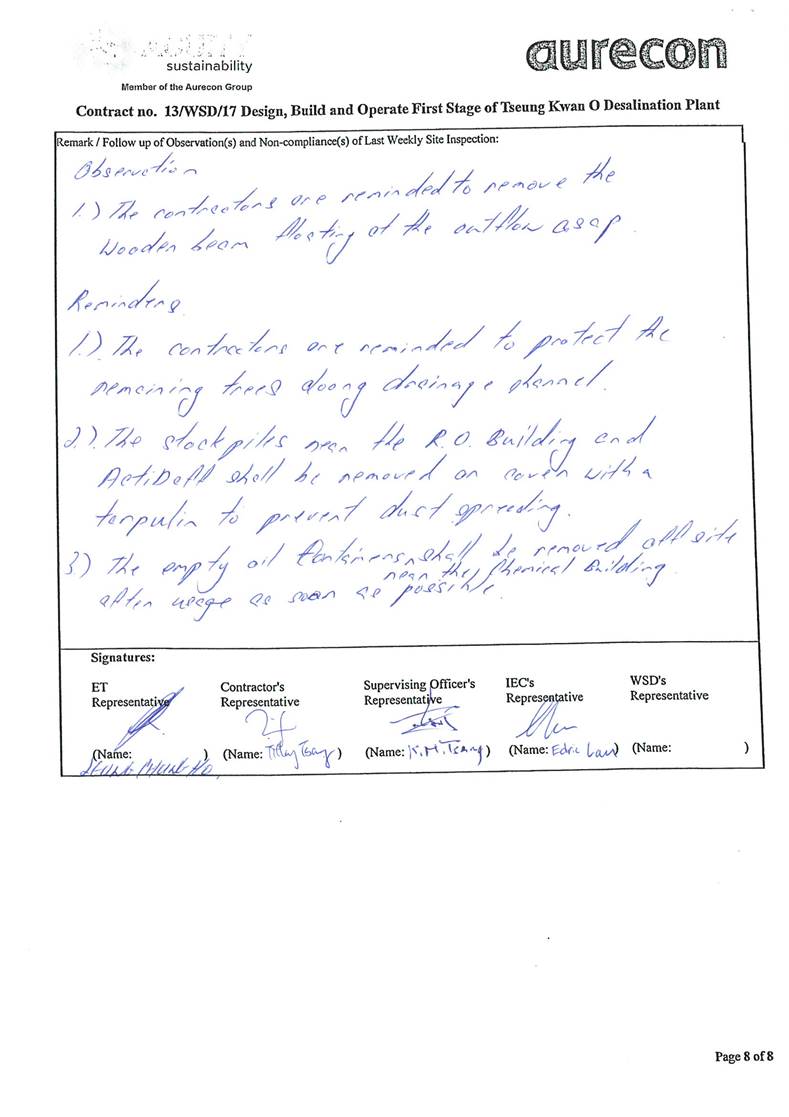 sustainability
aurecon
Member of the Aurecon Group
Contract no. 13/WSD/17 Design, Build and Operate First Stage of Tseung Kwan O Desalination Plant
Remark / Follow up of Observation(s) and Non-compliance(s) of Last Weekly Site Inspection:
Observation
1.) The contractors are reminded to remove the
wooden beam floating at the outflow asap.
Reminders
1.). The contractors are reminded to protect the
remaining trees along drainage channel.
2.). The stockpiles near the R.O. Building and
ActiDaff shall be removed or cover with a
tarpulin to prevent dust spreading.
3) The empty oil containers shall be removed off site
near the Chemical Building
after usage as soon as possible.
Signatures:
ET Representative
Contractor's Representative
Supervising Officer's Representative
IEC's Representative
WSD's Representative
(Name: )
(Name: Tsang)
(Name: K.M. Tsang)
(Name: Edric Law)
(Name: )
Page 8 of 8